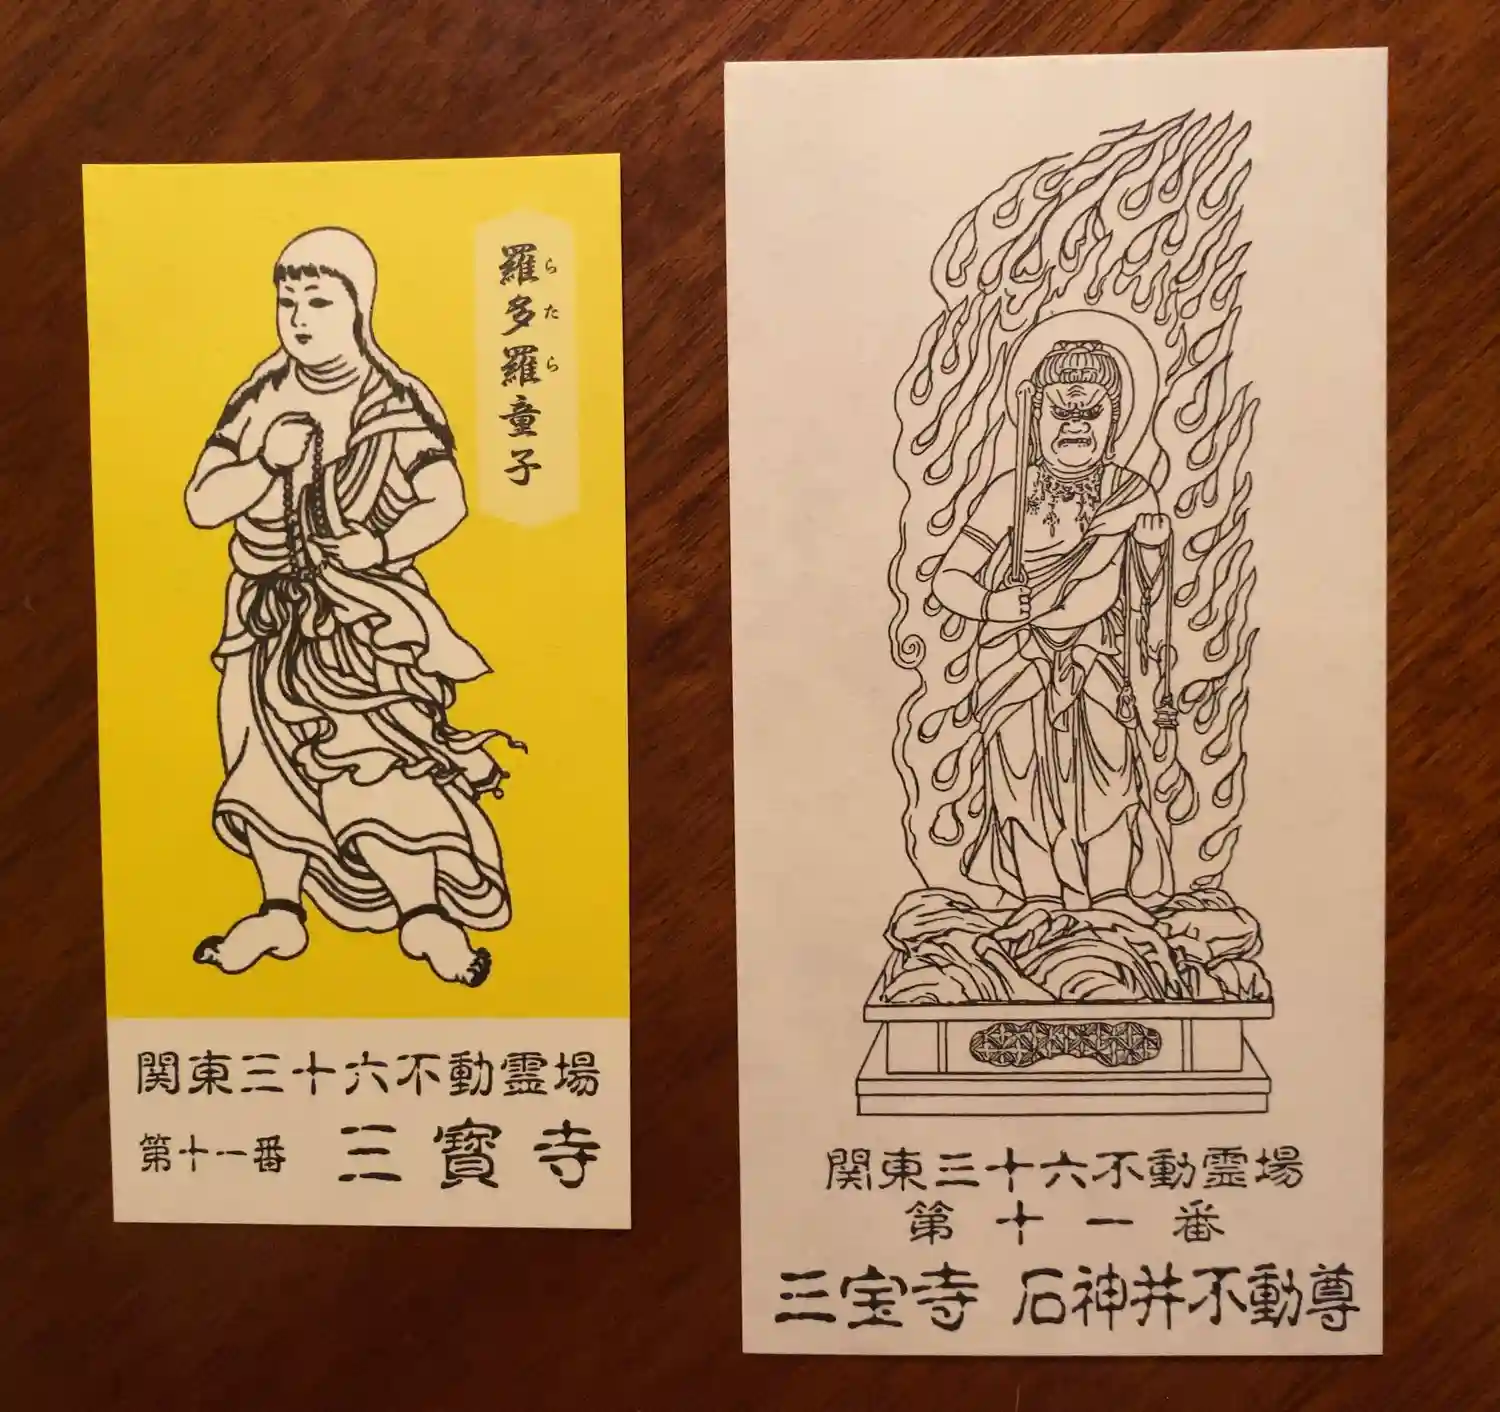 羅多羅童子
らたら
関東三十六不動霊場
第十一番 三寳寺
関東三十六不動霊場
第十一番
三宝寺 石神井不動尊